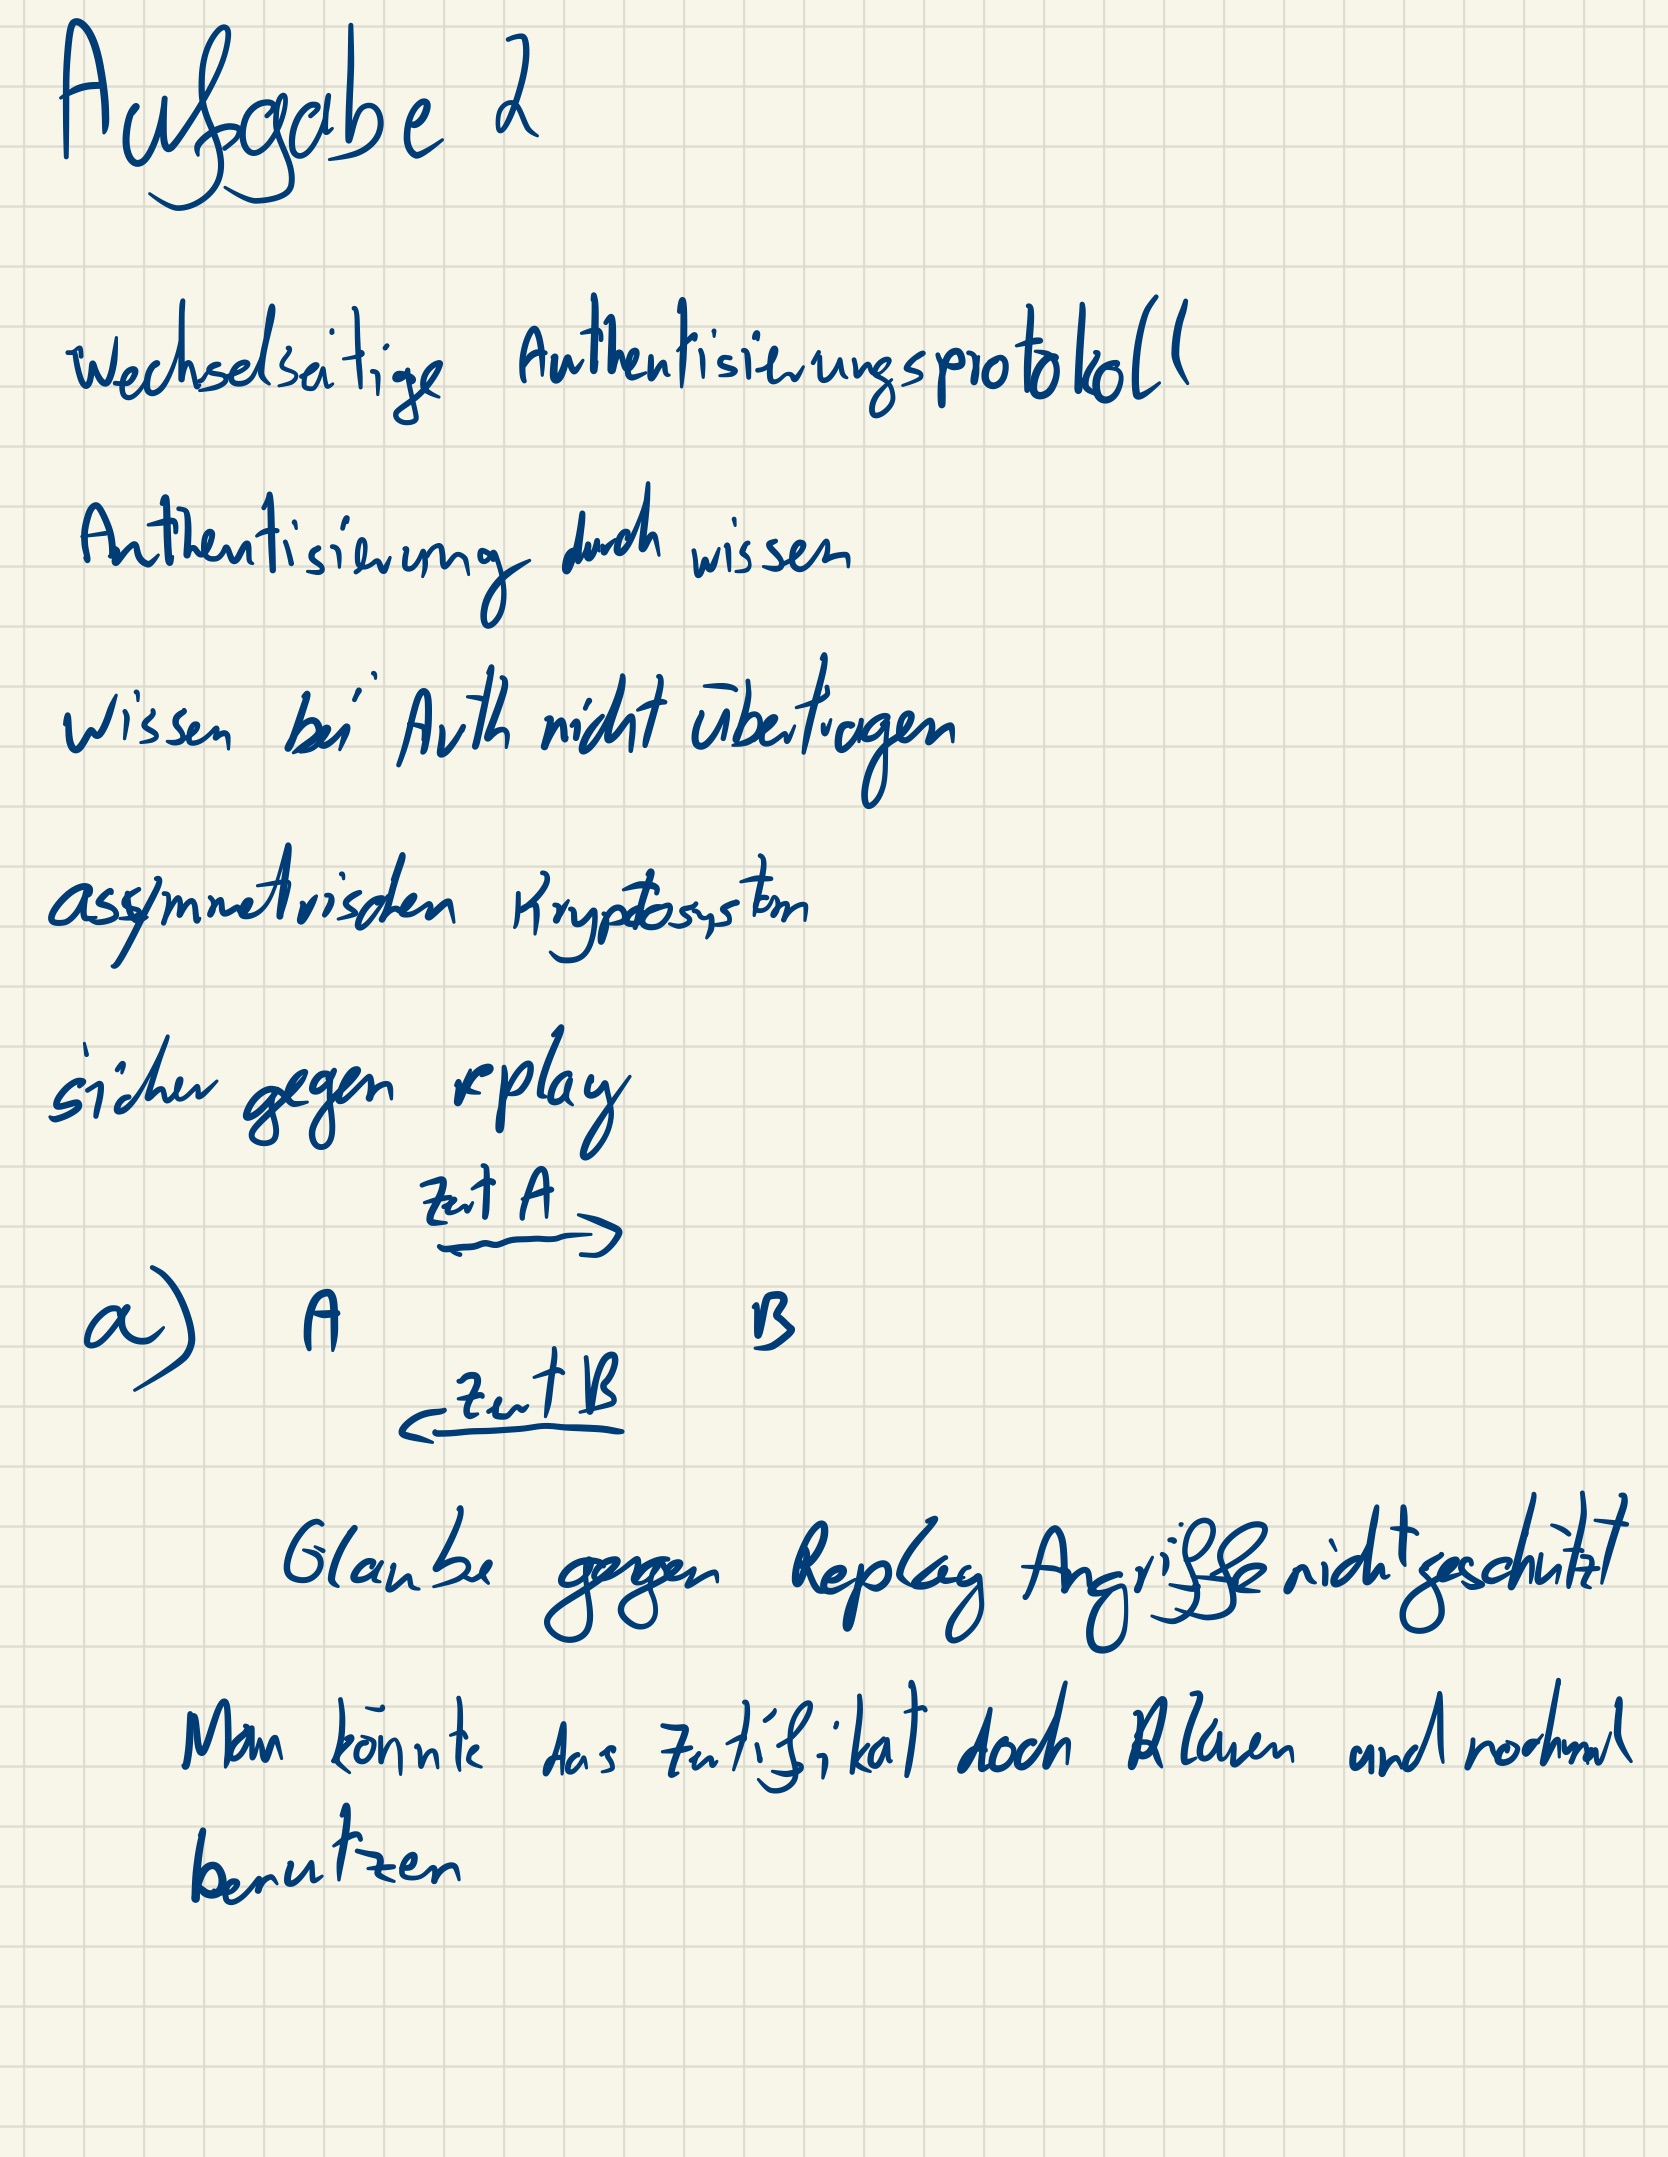 Aufgabe 2
Wechselseitige Authentisierungsprotokoll
Authentisierung durch wissen
wissen bei Auth nicht übertragen
assymmetrischen Kryptosystem
sicher gegen replay
Zert A
a) A B
Zert B
Glaube gegen Replay Angriffe nicht geschützt
Man könnte das Zertifikat doch klauen und nochmal
benutzen